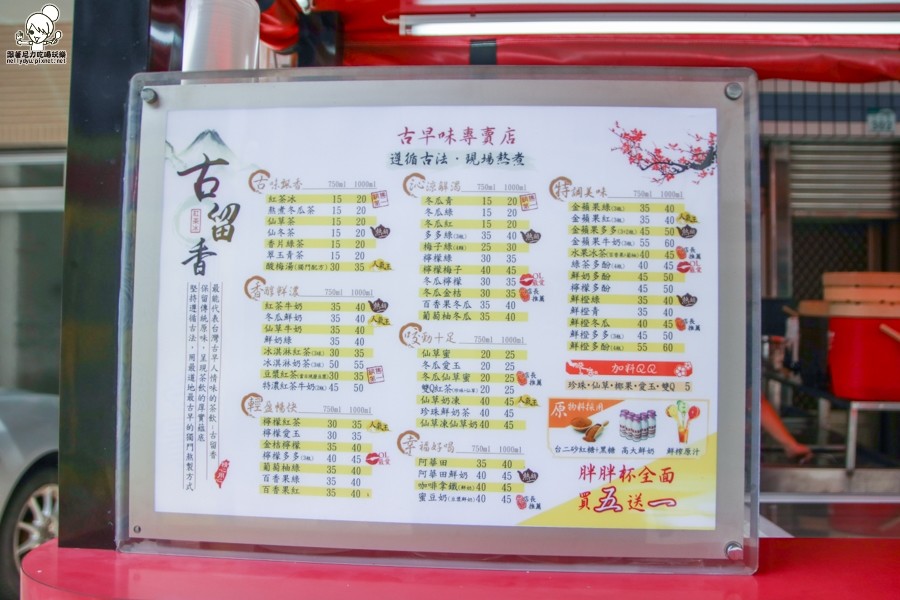 跟著尼力吃喝玩樂
nellydyu.pixnet.net
古早味專賣店
遵循古法・現場熬煮
古留香
紅茶冰
最能代表台灣古早人情味的茶飲，古留香
保留傳統原味，呈現茶飲的厚實蘊底
堅持遵循古法，用最道地最古早的獨門熬製方式
古味飄香 750ml 1000ml
紅茶冰 15 20
熬煮冬瓜茶 15 20
仙草茶 15 20
仙冬茶 15 20
香片綠茶 15 20
草玉青茶 15 20
酸梅湯(獨門配方) 30 35 人氣王
香醇鮮濃 750ml 1000ml
紅茶牛奶 35 40 熱甜
冬瓜鮮奶 35 40 人氣王
仙草牛奶 35 40
鮮奶綠 35 40
冰淇淋紅茶(3福) 30 35
冰淇淋奶茶(3福) 50 55
豆漿紅茶 30 35
特濃紅茶牛奶 45 50
輕盈暢快 750ml 1000ml
檸檬紅茶 30 35 人氣王
檸檬愛玉 30 35
金桔檸檬 35 40
檸檬多多 40 45 OL最愛
葡萄柚綠 35 40
百香果綠 35 40
百香果紅 35 40
沁涼解渴 750ml 1000ml
冬瓜青 15 20
冬瓜綠 15 20
冬瓜紅 15 20
多多綠 35 40
梅子綠 25 30
檸檬綠 30 35
檸檬梅子 40 45
冬瓜檸檬 30 35 OL最愛
冬瓜金桔 30 35 店長推薦
百香果冬瓜 35 40
葡萄柚冬瓜 35 40
咬勁十足 750ml 1000ml
仙草蜜 20 25
冬瓜愛玉 20 25
冬瓜仙草蜜 20 25 店長推薦
雙Q紅茶(珍珠/仙草) 20 25
仙草奶凍 40 45 人氣王
珍珠鮮奶茶 40 45
仙草凍仙草奶 40 45
幸福好喝 750ml 1000ml
阿華田 35 40
阿華田鮮奶 40 45
咖啡拿鐵(鮮奶) 40 45
蜜豆奶(豆漿鮮奶) 40 45 店長推薦
特調美味 750ml 1000ml
金蘋果綠 35 40
金蘋果紅 35 40 人氣王
金蘋果多多 45 50
金蘋果牛奶 55 60
水果冰茶(百香果/葡柚) 40 45 店長推薦
綠茶多酚 40 45 OL最愛
鮮奶多酚 45 50
檸檬多酚 45 50
鮮橙綠 35 40
鮮橙青 35 40
鮮橙冬瓜 40 45 店長推薦
鮮橙多多 45 50
鮮橙多酚 55 60
加料QQ
珍珠・仙草・椰果・愛玉・雙Q 5
原物料採用
台二砂紅糖+黑糖 高大鮮奶 鮮榨原汁
胖胖杯全面
買五送一